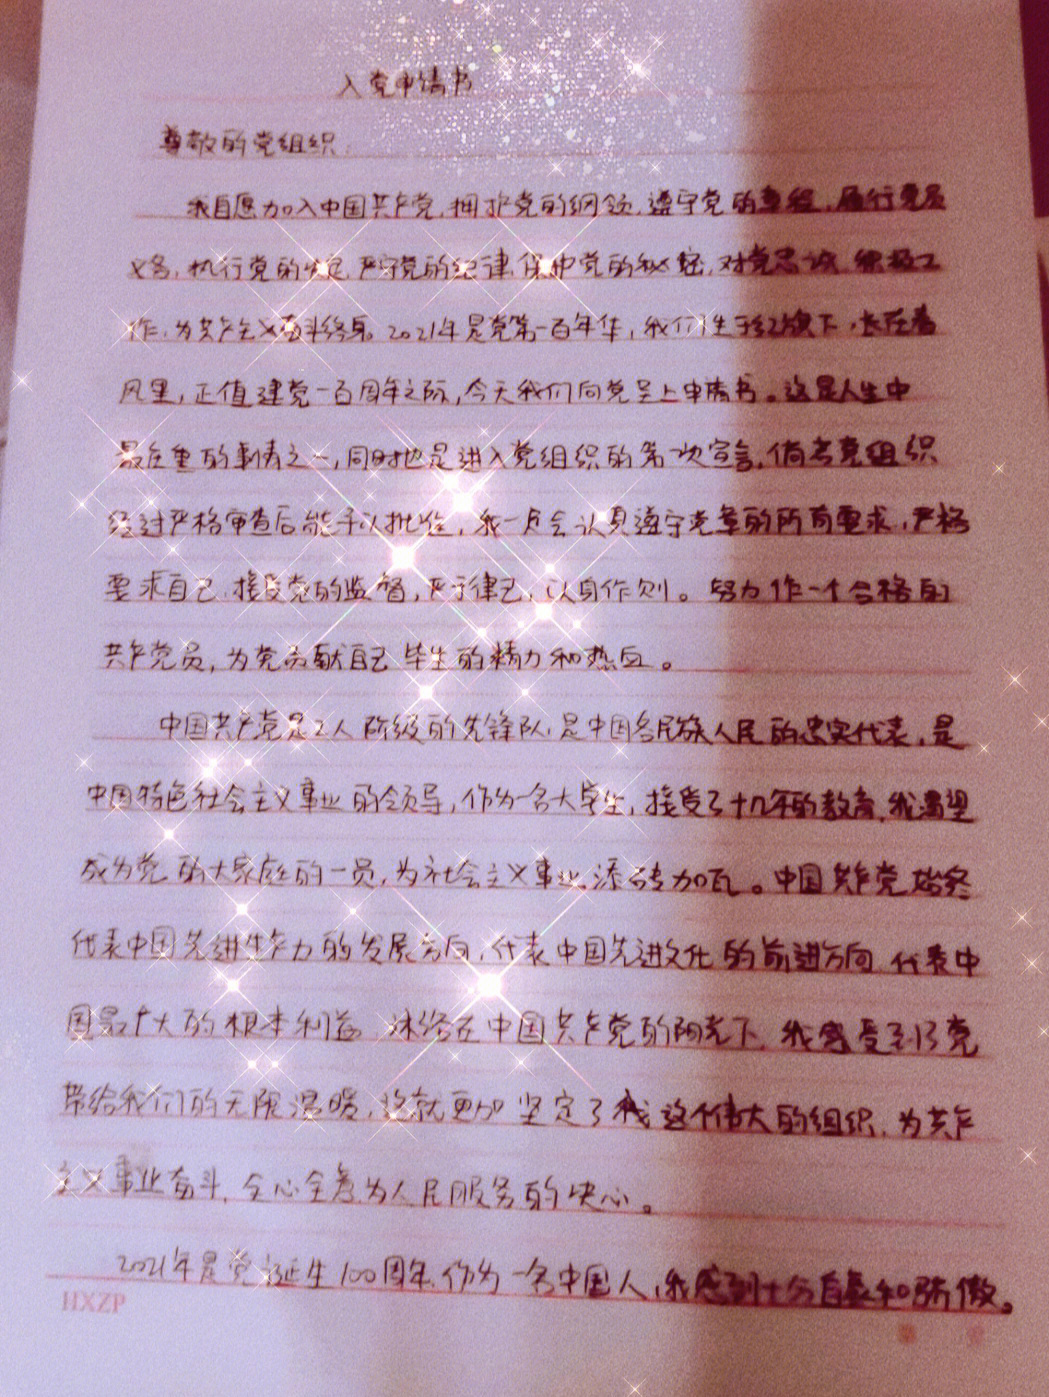 入党申请书
尊敬的党组织:
我自愿加入中国共产党,拥护党的纲领,遵守党的章程,履行党员
义务,执行党的决定,严守党的纪律,保护党的秘密,对党忠诚,积极工
作,为共产主义奋斗终身。2021年是党第一百年华,我们生于红旗下,长在春
风里,正值建党一百周年之际,今天我们向党呈上申请书。这是人生中
最庄重的事情之一,同时也是进入党组织的第一次宣言,倘若党组织
经过严格审查后能予以批准,我一定会认真遵守党章的所有要求,严格
要求自己,接受党的监督,严于律己,以身作则。努力作一个合格的
共产党员,为党贡献自己毕生的精力和热血。
中国共产党是工人阶级的先锋队,是中国各民族人民的忠实代表,是
中国特色社会主义事业的领导,作为一名大学生,接受了十几年的教育,我渴望
成为党的大家庭的一员,为社会主义事业添砖加瓦。中国共产党始终
代表中国先进生产力的发展方向,代表中国先进文化的前进方向,代表中
国最广大的根本利益,沐浴在中国共产党的阳光下,我感受到了党
带给我们的无限温暖,这就更加坚定了我这个伟大的组织,为共产
主义事业奋斗,全心全意为人民服务的决心。
2021年是党诞生100周年,作为一名中国人,我感到十分自豪和骄傲。
HXZP